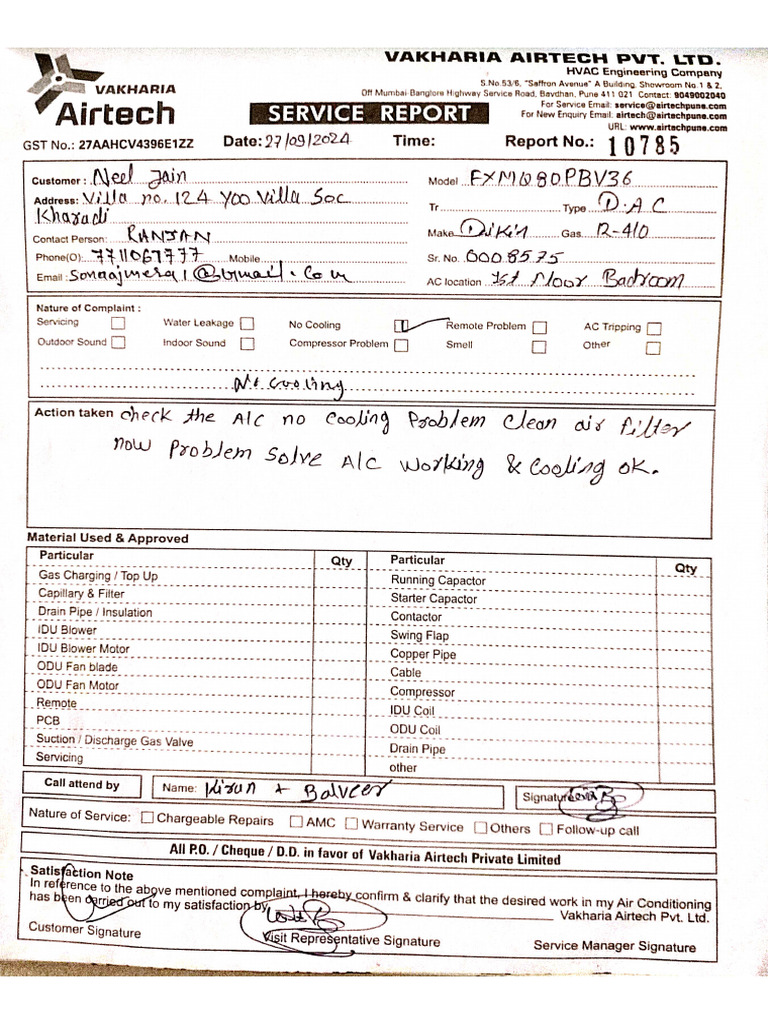 VAKHARIA AIRTECH PVT. LTD.
HVAC Engineering Company
S.No.53/6, "Saffron Avenue" A Building, Showroom No.1 & 2,
Off Mumbai-Banglore Highway Service Road, Bavdhan, Pune 411 021 Contact: 9049002040
For Service Email: service@airtechpune.com
For New Enquiry Email: airtech@airtechpune.com
URL: www.airtechpune.com
VAKHARIA
Airtech
SERVICE REPORT
GST No.: 27AAHCV4396E1ZZ Date: 27/09/2024 Time: Report No.: 10785
Customer: Neel Jain
Address: Villa no. 124 Yoo Villa Soc
Kharadi
Contact Person: RANJAN
Phone(O): 7711067777 Mobile
Email: sonaajmera1@gmail.com
Model FXMQ80PBV36
Tr Type D.A.C
Make Daikin Gas R-410
Sr. No. 0008575
AC location 1st Floor Badroom
Nature of Complaint :
Servicing Water Leakage No Cooling Remote Problem AC Tripping
Outdoor Sound Indoor Sound Compressor Problem Smell Other
No cooling
Action taken check the A/C no cooling Problem Clean air filter
now Problem Solve A/C working & cooling ok.
Material Used & Approved
Particular Qty Particular Qty
Gas Charging / Top Up Running Capactor
Capillary & Filter Starter Capactor
Drain Pipe / Insulation Contactor
IDU Blower Swing Flap
IDU Blower Motor Copper Pipe
ODU Fan blade Cable
ODU Fan Motor Compressor
Remote IDU Coil
PCB ODU Coil
Suction / Discharge Gas Valve Drain Pipe
Servicing other
Call attend by Name: Kiran + Balveer Signature
Nature of Service: Chargeable Repairs AMC Warranty Service Others Follow-up call
All P.O. / Cheque / D.D. in favor of Vakharia Airtech Private Limited
Satisfaction Note
In reference to the above mentioned complaint, I hereby confirm & clarify that the desired work in my Air Conditioning
has been carried out to my satisfaction by Vakharia Airtech Pvt. Ltd.
Customer Signature Visit Representative Signature Service Manager Signature